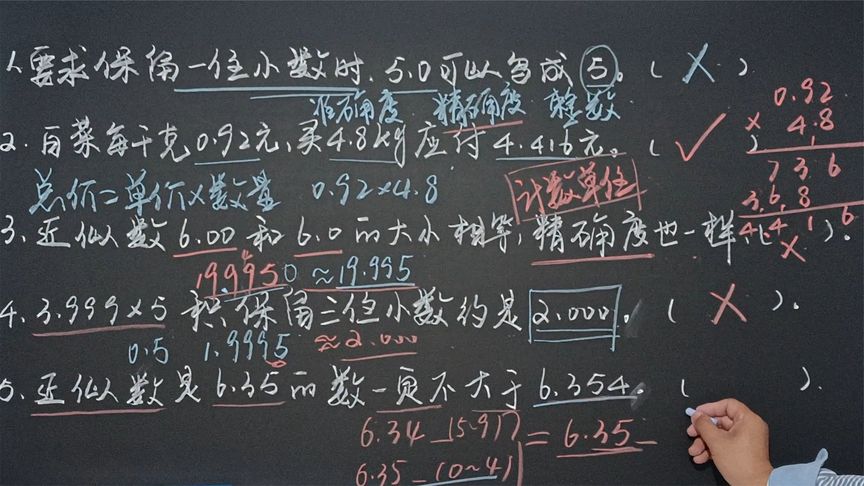 1.要求保留一位小数时,5.0可以写成5。( × )
准确度 精确度 整数
0.92
× 4.8
7 3 6
3 6 8
4.4 1 6
2.白菜每千克0.92元,买4.8kg应付4.416元。( ✓ )
总价=单价×数量 0.92×4.8 计数单位
3.近似数6.00和6.0的大小相等,精确度也一样。( × )。
19.9950≈19.995
4.3.999×5积保留三位小数约是2.000。( × )。
0.5 1.9995≈2.000
5.近似数是6.35的数一定不大于6.354。( ).
6.34_(5~9)
=6.35
6.35_(0~4)